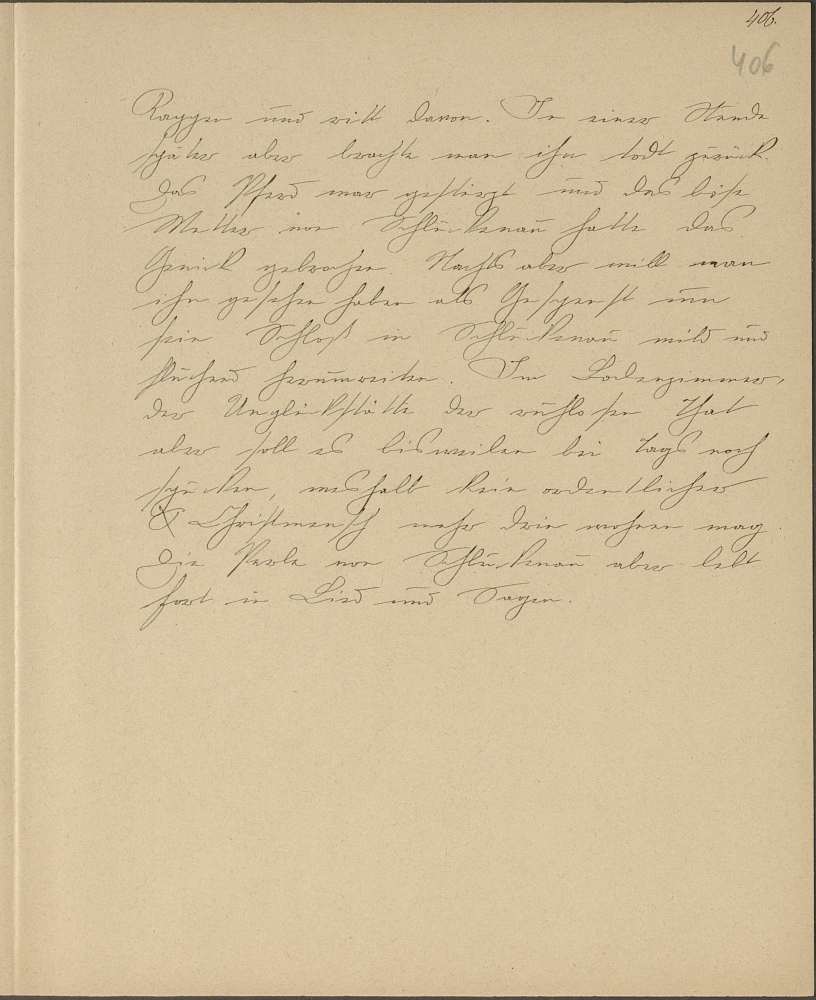 406.
406
Rappen und ritt davon. In einer Stunde
später aber brachte man ihn todt zurück.
Das Pferd war gestürzt und das böse
Wetter von Schluckenau hatte das
Genick gebrochen. Nachts aber will man
ihn gesehen haben als Gespenst um
sein Schloß in Schluckenau wild und
fluchend herumreiten. Im Badezimmer,
der Unglücksstätte der ruhlosen That
aber soll es bisweilen bei Tags noch
spucken, weshalb kein ordentlicher
Christmensch mehr drin wohnen mag.
Die Perle von Schluckenau aber lebt
fort in Lied und Sagen.